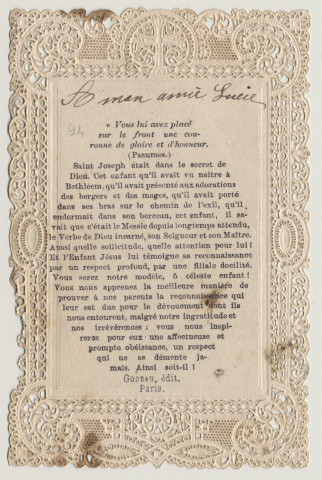 A mon amie Lucie
94
« Vous lui avez placé
sur le front une cou-
ronne de gloire et d'honneur.
(Psaumes.)
Saint Joseph était dans le secret de
Dieu. Cet enfant qu'il avait vu naître à
Bethléem, qu'il avait présenté aux adorations
des bergers et des mages, qu'il avait porté
dans ses bras sur le chemin de l'exil, qu'il
endormait dans son berceau, cet enfant, il sa-
vait que c'était le Messie depuis longtemps attendu,
le Verbe de Dieu incarné, son Seigneur et son Maître.
Aussi quelle sollicitude, quelle attention pour lui !
Et l'Enfant Jésus lui témoigne sa reconnaissance
par un respect profond, par une filiale docilité.
Vous serez notre modèle, ô céleste enfant !
Vous nous apprenez la meilleure manière de
prouver à nos parents la reconnaissance qui
leur est due pour le dévouement dont ils
nous entourent, malgré notre ingratitude et
nos irrévérences : vous nous inspi-
rerez pour eux une affectueuse et
prompte obéissance, un respect
qui ne se démente ja-
mais. Ainsi soit-il !
GODEAU, édit.
Paris.